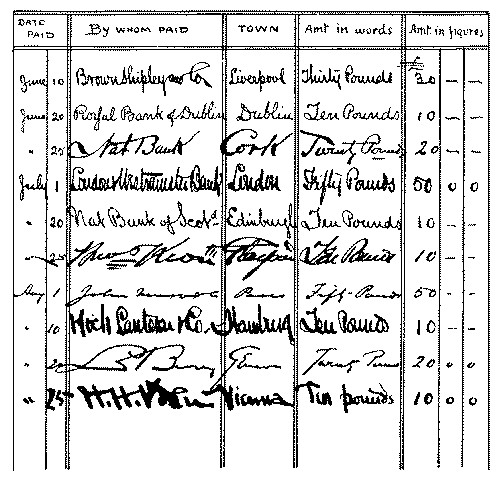 DATE PAID BY WHOM PAID TOWN Amt in words Amt in figures
June 10 Brown Shipley and Co Liverpool Thirty Pounds £30 — —
June 20 Royal Bank of Dublin Dublin Ten Pounds 10 — —
" 25 Nat Bank Cork Twenty Pounds 20 — —
July 1 London & Westminster Bank London Fifty Pounds 50 0 0
" 20 Nat Bank of Scot. Edinburgh Ten Pounds 10 — —
" 25 Ten Pounds 10 — —
Aug 1 John Fifty Pounds 50 — —
" 10 & Co. Hamburg Ten Pounds 10 — —
" Twenty 20 0 0
" 25 H.H. Vienna Ten pounds 10 0 0